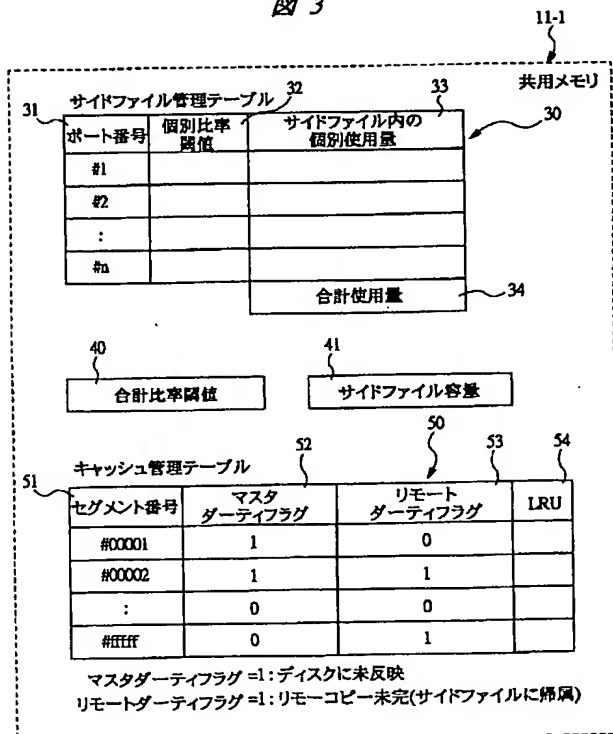 図 3
11-1
共用メモリ
サイドファイル管理テーブル
31
32
33
30
ポート番号
個別比率
閾値
サイドファイル内の
個別使用量
#1
#2
:
#n
合計使用量
34
40
41
合計比率閾値
サイドファイル容量
50
キャッシュ管理テーブル
51
52
53
54
セグメント番号
マスタ
ダーティフラグ
リモート
ダーティフラグ
LRU
#00001
1
0
#00002
1
1
:
0
0
#fffff
0
1
マスタダーティフラグ=1:ディスクに未反映
リモートダーティフラグ=1:リモーコピー未完(サイドファイルに帰属)